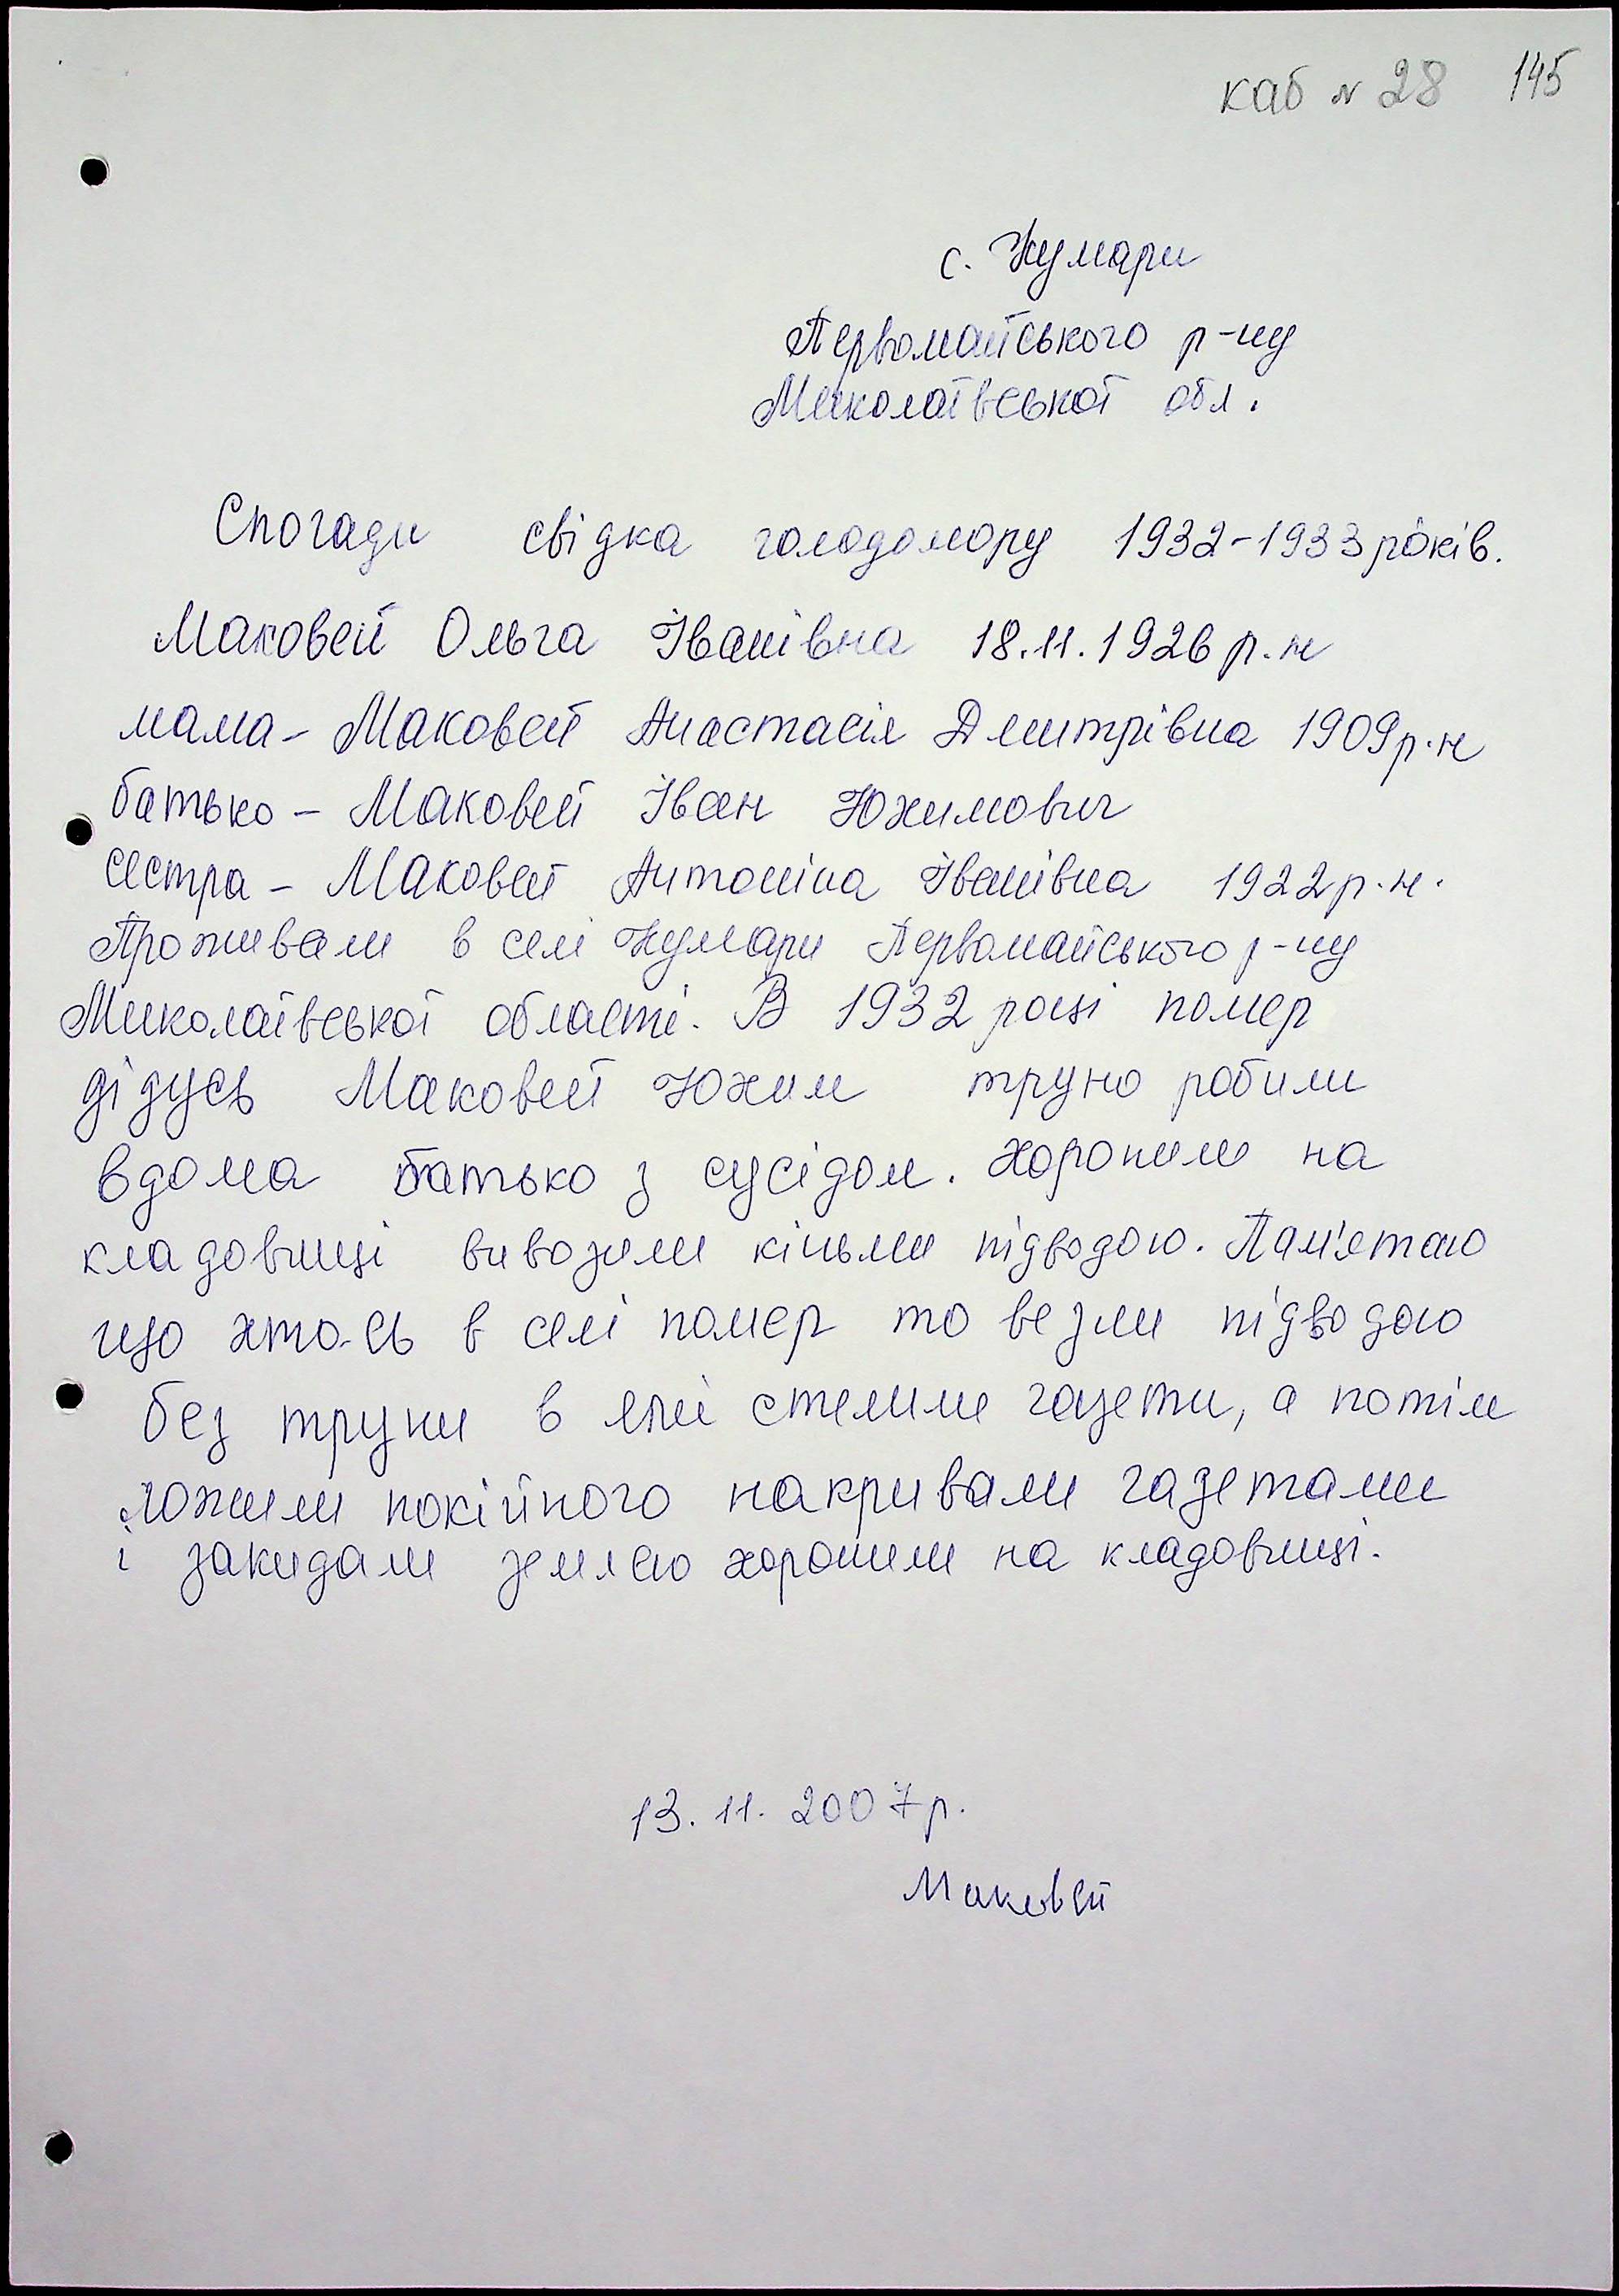 каб № 28 145
с. Кумари
Первомайського р-ну
Миколаївської обл.
Спогади свідка голодомору 1932-1933 років.
Маковей Ольга Іванівна 18.11.1926 р.н
мама - Маковей Анастасія Дмитрівна 1909 р.н
батько - Маковей Іван Юхимович
сестра - Маковей Антоніна Іванівна 1922 р.н.
Проживали в селі Кумари Первомайського р-ну
Миколаївської області. В 1932 році помер
дідусь Маковей Юхим труно робили
вдома батько з сусідом. Хоронили на
кладовищі вивозили кіньми підводою. Пам'ятаю
що хто-сь в селі помер то везли підводою
без труни в ямі стелили газети, а потім
ложили покійного накривали газетами
і закидали землею хоронили на кладовищі.
13.11.2007 р.
Маковей